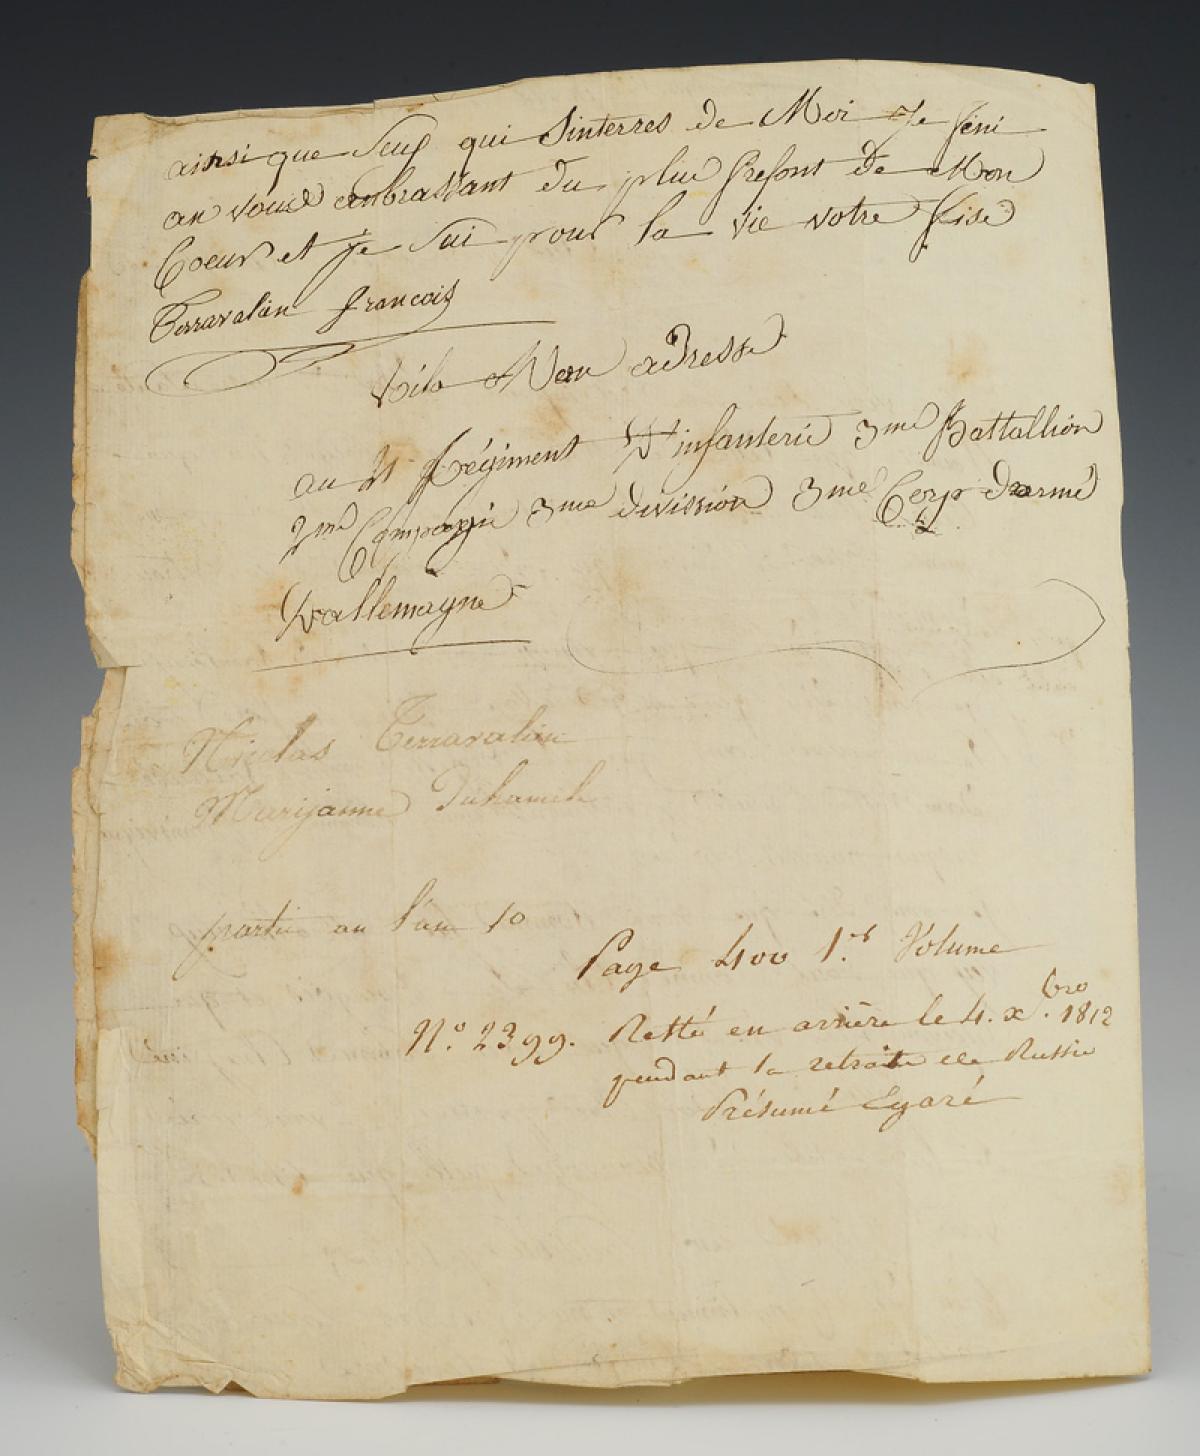 ainsi que Seux qui Sinterres de Moi Je feni
an vous enbrassant du plus frefont de Mon
Coeur et Je Sui pour la vie votre fise
Terravalin francois
Vila Mon adresse
au 21 Régiment D'infanterie 3me Battallion
2me Compagnie 3me division 3me Corp darmé
Dallemaigne
Nicolas Terravalin
Marijanne Duhameh
partie an l'an 10
Page 400 1.er Volume
N.º 2399. Resté en arrière le 4. xbre. 1812
pendant la retraite de Russie
Présumé Egaré